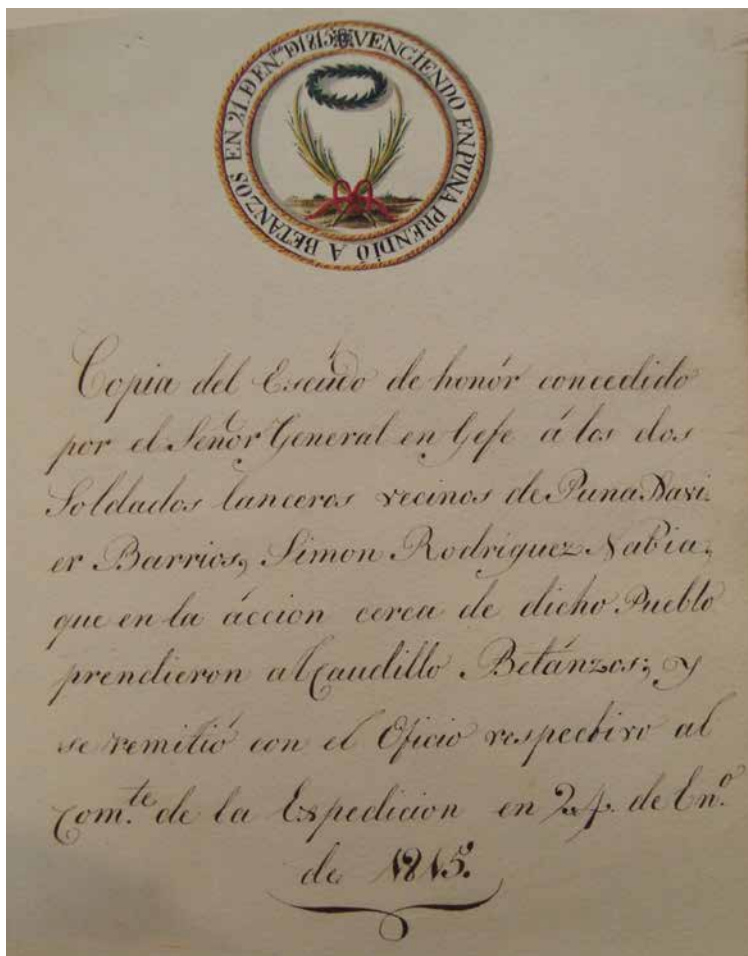 VENCIENDO EN PUNA PRENDIÓ A BETANZOS EN 21 D EN.º D 1815
Copia del Escúdo de honór concedido
por el Señor General en Gefe á los dos
Soldados lanceros vecinos de Puna Xavi-
er Barrios, Simon Rodriguez Nabia,
que en la áccion cerca de dicho Pueblo
prendieron al Caudillo Betánzos; y
se remitió con el Oficio respectivo al
Com.te de la Expedicion en 24. de En.º
de 1815.